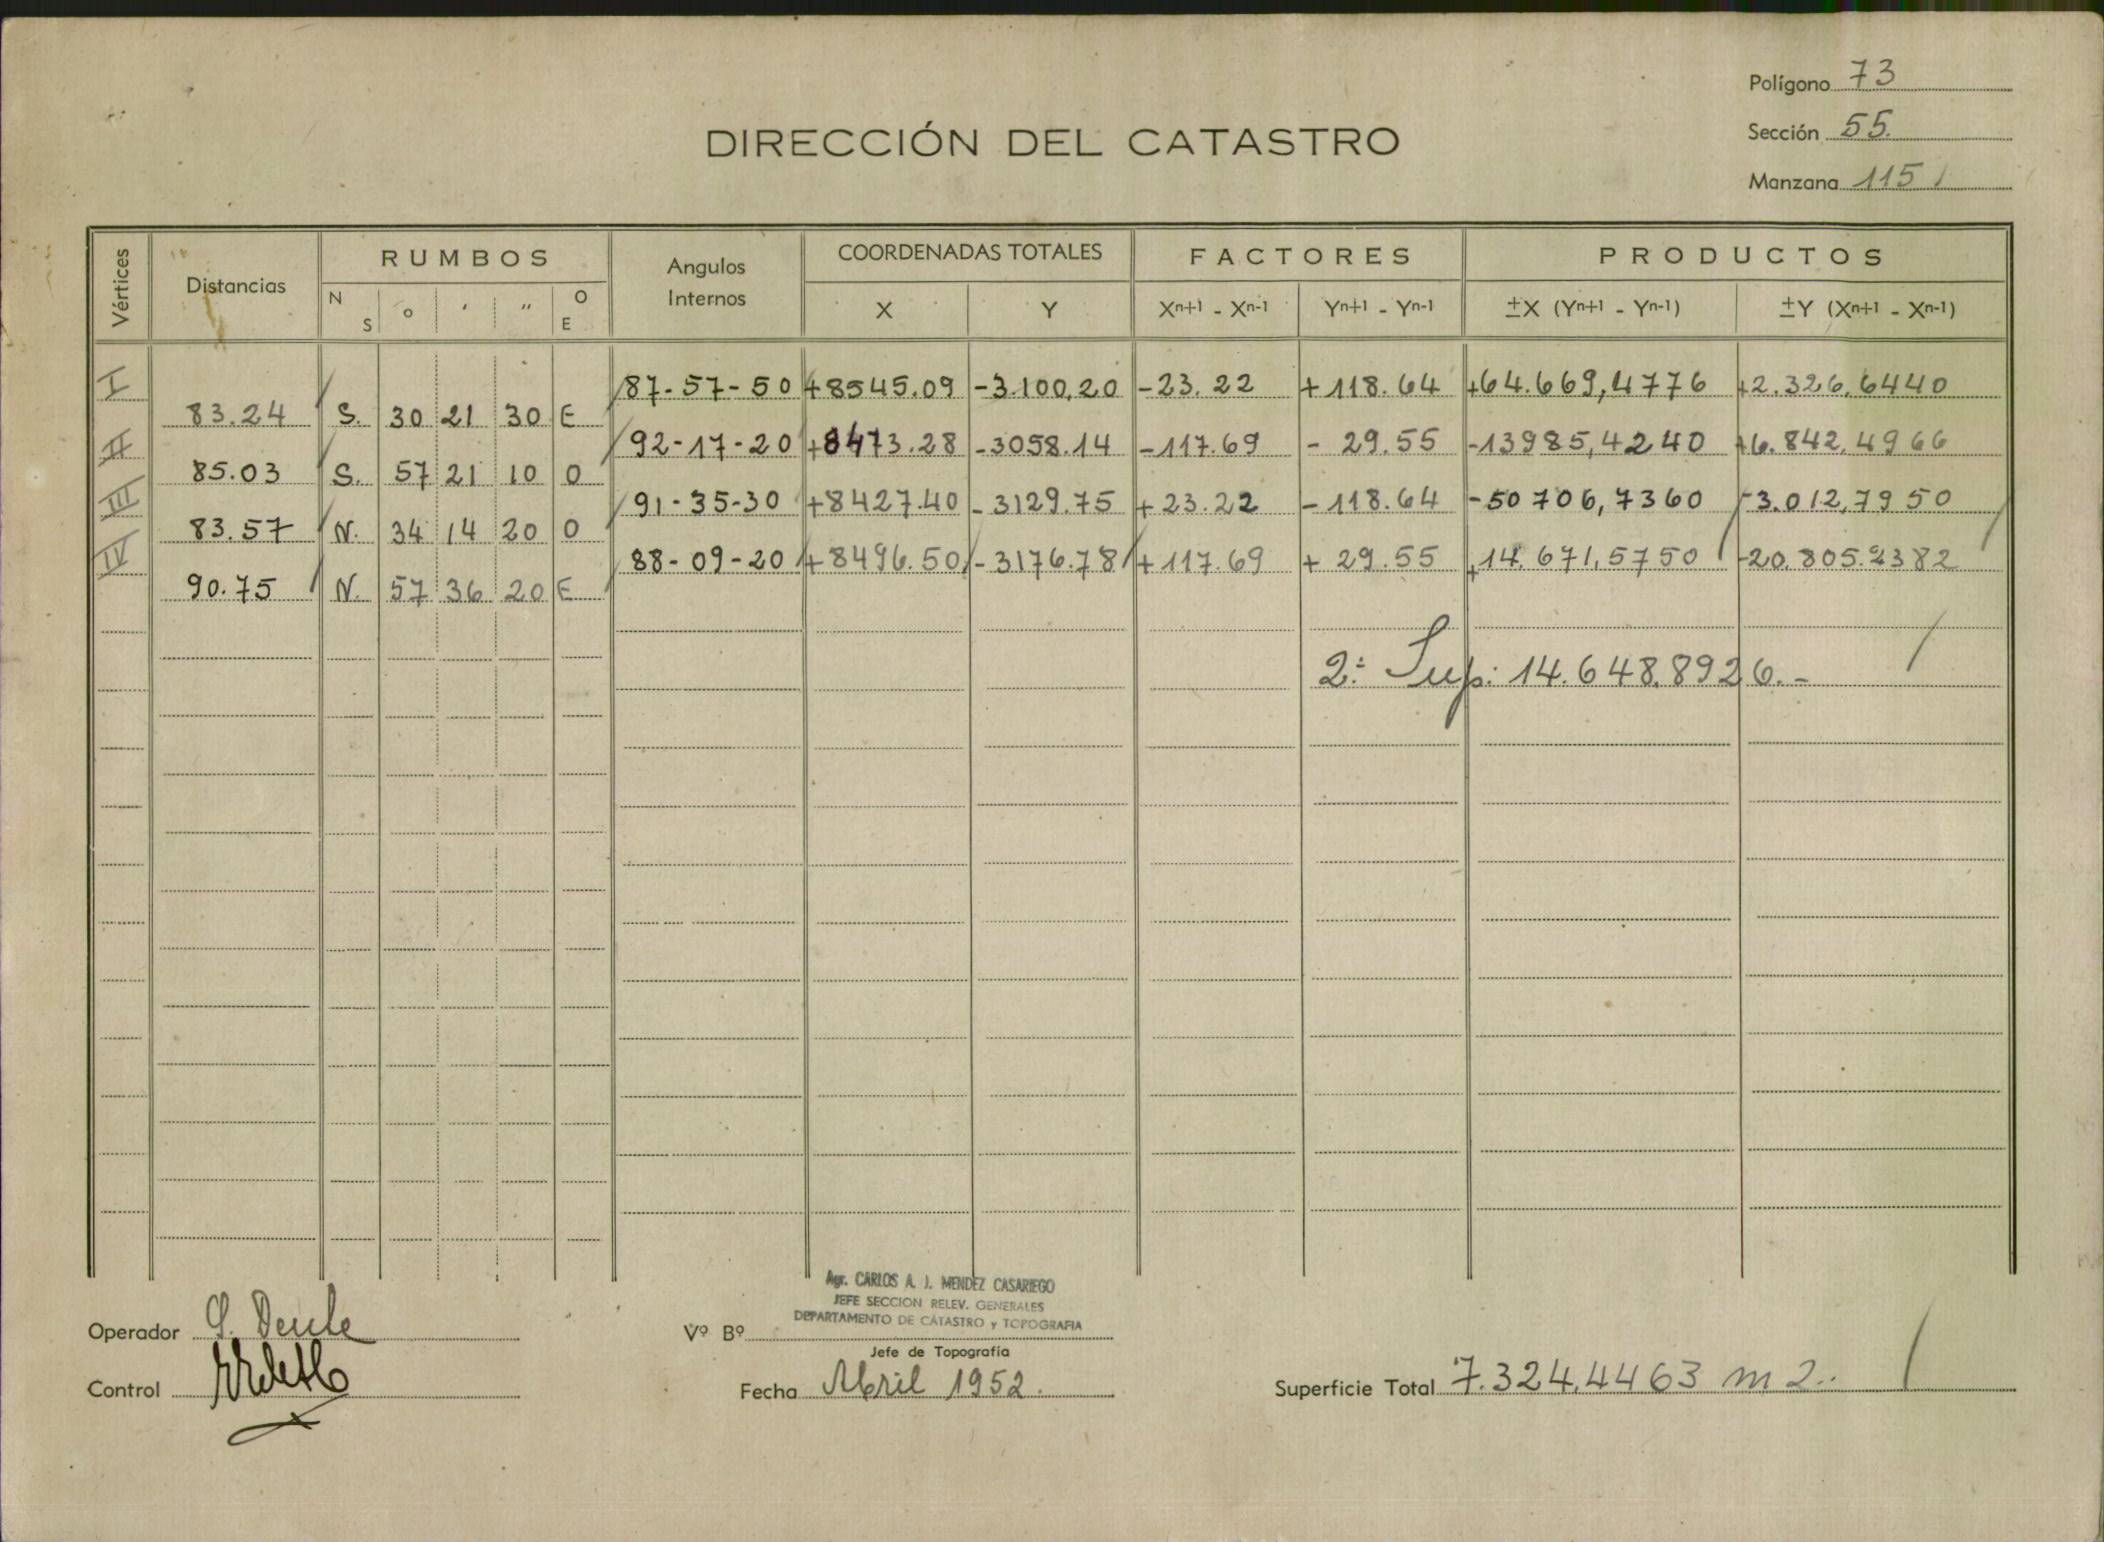 Polígono 73
Sección 55.
Manzana 115
DIRECCIÓN DEL CATASTRO
Vértices Distancias RUMBOS Angulos Internos COORDENADAS TOTALES FACTORES PRODUCTOS
N S o ′ ″ O E X Y Xn+1 - Xn-1 Yn+1 - Yn-1 ±X (Yn+1 - Yn-1) ±Y (Xn+1 - Xn-1)
I 87-57-50 +8545.09 -3.100,20 -23.22 +118.64 +64.669,4776 +2.326,6440
83.24 S. 30 21 30 E
II 92-17-20 +8473.28 -3058.14 -117.69 - 29.55 -13985,4240 +6.842,4966
85.03 S. 57 21 10 O
III 91-35-30 +8427.40 -3129.75 +23.22 -118.64 -50706,7360 -3.012,7950
83.57 N. 34 14 20 O
IV 88-09-20 +8496.50 -3176.78 +117.69 + 29.55 +14.671,5750 -20.805.2382
90.75 N. 57 36 20 E
2: Sup: 14.648.8926.-
Agr. CARLOS A. J. MENDEZ CASARIEGO
JEFE SECCION RELEV. GENERALES
DEPARTAMENTO DE CATASTRO y TOPOGRAFIA
Operador
Vº Bº
Jefe de Topografía
Control
Fecha Abril 1952.
Superficie Total 7.324,4463 m2..